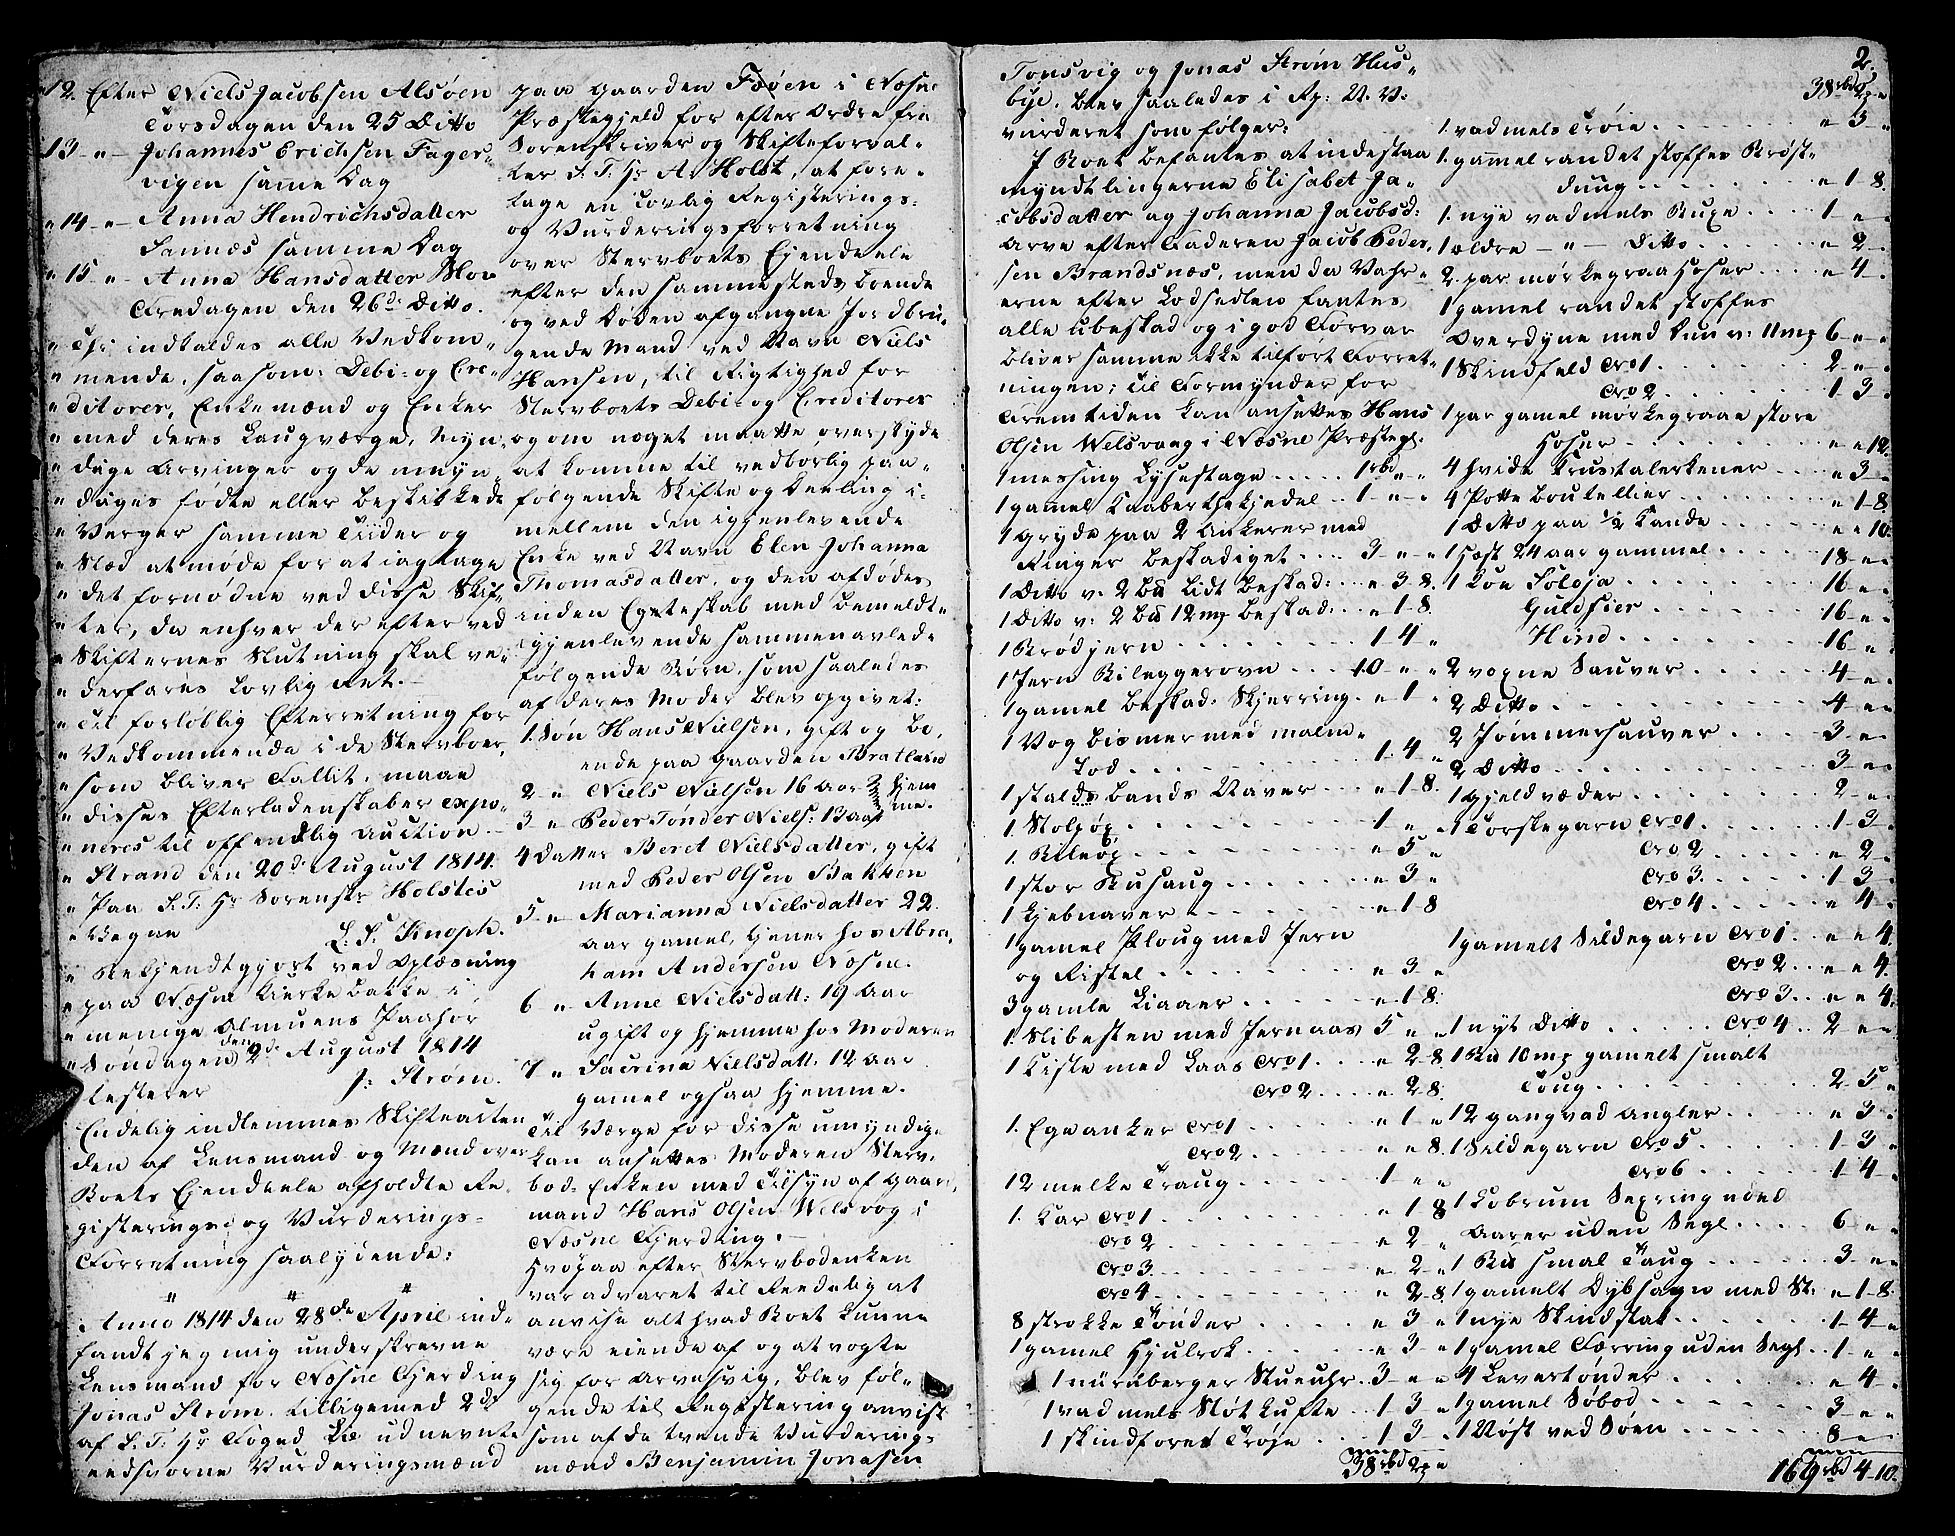 12. Efter Niels Jacobsen Alsøen
Torsdagen den 25 Ditto
13 - " - Johannes Erichsen Fager-
vigen samme Dag
" 14 - " - Anna Hendrichsdatter
Sannæs samme Dag
" 15 " - Anna Hansdatter Moe
Fredagen den 26de Ditto.
" Thi indkaldes alle Vedkom-
" mende, saasom: Debi- og Cre-
" ditorer, Enkemænd og Enker
" med deres Laugværge, Myn-
" dige Arvinger og de umyn-
" diges fødte eller beskikkede
" Verger samme Tiider og
" Stæd at møde for at iagtage
" det fornødne ved disse Skif-
" ter, da enhver der efter ved
" Skifternes Slutning skal ve-
" derfares Lovlig Ret. -
" Til forløblig Efterretning for
" Vedkommende i de Stervboer,
" som bliver Fallit, maae
" disses Efterladenskaber expo-
" neres til offendtlig Auction -
" Strand den 20de August 1814.
" Paa S. T. Hr Sorenskr Holstes
" Vegne
L. S. Knoph.
" Bekjendtgjort ved Oplæsning
" paa Næsne Kierke bakke i
" menige Almuens Paahør
" Søndagen den 2de August 1814
testerer J: Strøm.
Endelig indlemmes Skifteacten
den af Lensmand og Mænd over
Boets Ejendeele afholdte Re-
gisterings- og Vurderings-
Forretning saalydende:
Anno 1814 den 28de April ind-
fandt jeg mig underskrevne
Lensmand for Næsne Fjerding
Jonas Strøm, tilligemed 2de
af S. T. Hr Foged udnevnte
eedsvorne Vurderingsmænd
paa Gaarden Føøen i Næsne
Præstegjeld for efter Ordre fra
Sorenskriver og Skifteforval-
ter S. T. Hr A. Holst, at fore-
tage en Lovlig Registerings-
og Vurderingsforretning
over Stervboets Ejendeele
efter den sammesteds boende
og ved Døden afgangne Jordbru-
gende Mand ved Navn Niels
Hansen, til Rigtighed for
Stervboets Debi- og Creditorer
og om noget maatte overskyde
at komme til vedborlig paa-
følgende Skifte og Deeling i-
mellem den igjenlevende
Enke ved Navn Elen Johanna
Thomasdatter, og den afdødes
inden Egteskab med bemeldte
igjenlevende sammenavlede
følgende Børn, som saaledes
af deres Moder blev opgivet:
1. Søn Hans Nielsen, gift og bo-
ende paa Gaarden Bratland
2 - " Niels Nielsen 16 Aar } hjem
3 - " Peder Tønder Niels: 13 Aar } me.
4 Datter Beret Nielsdatter, gift
med Peder Olsen Bakken
5 - " Marianna Nielsdatter 22
Aar gamel, tjener hos Abra-
ham Andersen Næsne.
6 - " Anne Nielsdatt: 19 Aar
ugift og hjemme hos Moderen
7 - " Sacrina Nielsdatt: 12 Aar
gamel ogsaa hjemme.
Til Værge for disse umyndige
kan ansettes Moderen Sterv-
bod-Enken med Tilsyn af Gaard-
mand Hans Olsen Welsvog i
Næsne Fjerding. -
Hvopaa efter Stervbodenken
var advaret til Reedelig at
anvise alt hvad Boet kunne
være eiende af og at vogte
sig for Arvesvig, blev føl-
gende til Registering anvist
som af de tvende Vurderings-
mænd Benjamin Jonasen
Tonsvig og Jonas Strøm Hus-
bye, blev saaledes i Rg: V. V.
vurderet som følger:
I Boet befantes at indestaa
myndtlingerne Elisabet Ja-
cobsdatter og Johanna Jacobsd:
Arve efter Faderen Jacob Peder-
sen Brandsnæs, men da Vahr-
erne efter Lodsedlen fantes
alle ubeskad og i god Forvar
bliver samme ikke tilført Forret-
ningen; til Formynder for
Fremtiden kan ansettes Hans
Olsen Welsvaag i Næsne Præstegl:
1 messing Lysestage ..... 1 rbd " "
1 gamel Kaaber Thekjedel .. 1 - " - "
1 Gryde paa 2 Ankerer med
Ringer beskadiget .... 3 - " - "
1 Ditto v: 2 bu lidt beskad: ... " 3 - 8.
1 Ditto v: 2 bu 12 mg beskad: .. " 1 - 8
1 Brødjern ....... 1 4 "
1 Jern Bileggerovn .... 10 - " - "
1 gamel beskad: Skjerring . " 1 "
1 Vog bismer med malm-
Lod ....... 1 4 "
1 stalds bands Naver ... " 1 8.
1. Stoløx ....... 1 " "
1. Biløx ....... " 5 "
1 stor Busaug ...... " 3 "
1 Kjebnaver ...... " 1 8
1 gamel Ploug med Jern
og Ristel ....... " 3 "
3 gamle Liaaer ..... " 1 8.
1. Slibesten med Jernaas 5 " "
1 Kiste med Laas No 1. ... " 2 8
No 2. .... " 2 8.
1. Egeanker No 1 ..... " 1 "
No 2 ..... " " 8.
12 melke Traug ..... 1 " "
1. Kar No 1 ...... " 1 8
No 2 ...... " 2 "
No 3 ...... " 2 "
No 4 ...... " 2 8
8 strokke Tønder .... " 3 "
1 gamel Hjulrok ..... " 3 "
1 nürnberger Stueuhr . 3 - " "
1 vadmels Sløtkufte .. 1 3 "
1 skindforet Trøje ... 1 3 "
38 rbd 2 " "
2.
38 rbd 2 " "
1. vadmels Trøie ....... " 3 "
1. gammel randet stoffes Brøst-
duug ....... " 1 - 8.
1. nye vadmels Buxe .... 1 - " - "
1 ældre - " - Ditto ...... " 2 "
2. par mørkegraa Hoser .... " 4 "
1 gamel randet stoffes
Overdyne med duun v: 11 mg 6 - " - "
1 Skindfeld No 1 ....... 2 - " - "
No 2 ...... 1 3 "
1 par gamel mørkegraae store
Hoser ........ " " 12.
4 hvide Krustalerkener .... " 3 - "
4 Potte Boutellier ...... " 1 - 8
1 Ditto paa 1/2 Kande ..... " " 10.
1 Hæst 24 aar gammel ..... 18 - " - "
1 Koe Soløja ........ 16 - " - "
Guldsier ....... 16 - " - "
Hind ........ 16 - " - "
2 voxne Sauver ...... 4 - " - "
2 Ditto ......... 4 - " - "
2 Jømmersauver ..... 3 - " - "
2 Ditto ......... 3 - " - "
1 Gjeldvæder ....... 2 - " - "
1 Torskegarn No 1 ..... 1 - 3 "
No 2 ..... " 2 - "
No 3 ..... 1 - 3 "
No 4 ..... " 4 - "
1 gamelt Sildegarn No 1 .. " " 4.
No 2 .. " " 4.
No 3 .. " " 4.
1 nyt Ditto ..... No 4 .. 2 " "
1 Bu 10 mg gamelt smalt
Toug ........ 2 5 "
12 gangvad Angler .... " 3 "
1 Sildegarn No 5 ..... 1 3 "
No 6 ..... 1 4 "
1 Tobrum Sexring med
Aarer uden Segl .... 6 - " "
1 Bu smal Toug ..... 3 - " "
1 gamelt Dybsagn med St: " 1 - 8.
1 nye Skindstak ...... 1 - 4 "
1 gamel Færring uden Segl . 1 - " "
4 Levertønder ....... " 4 - "
1 gamel Søbod ...... 3 - " "
1 Nøst ved Søen ..... 8 - " "
169 rbd 4 - 10.